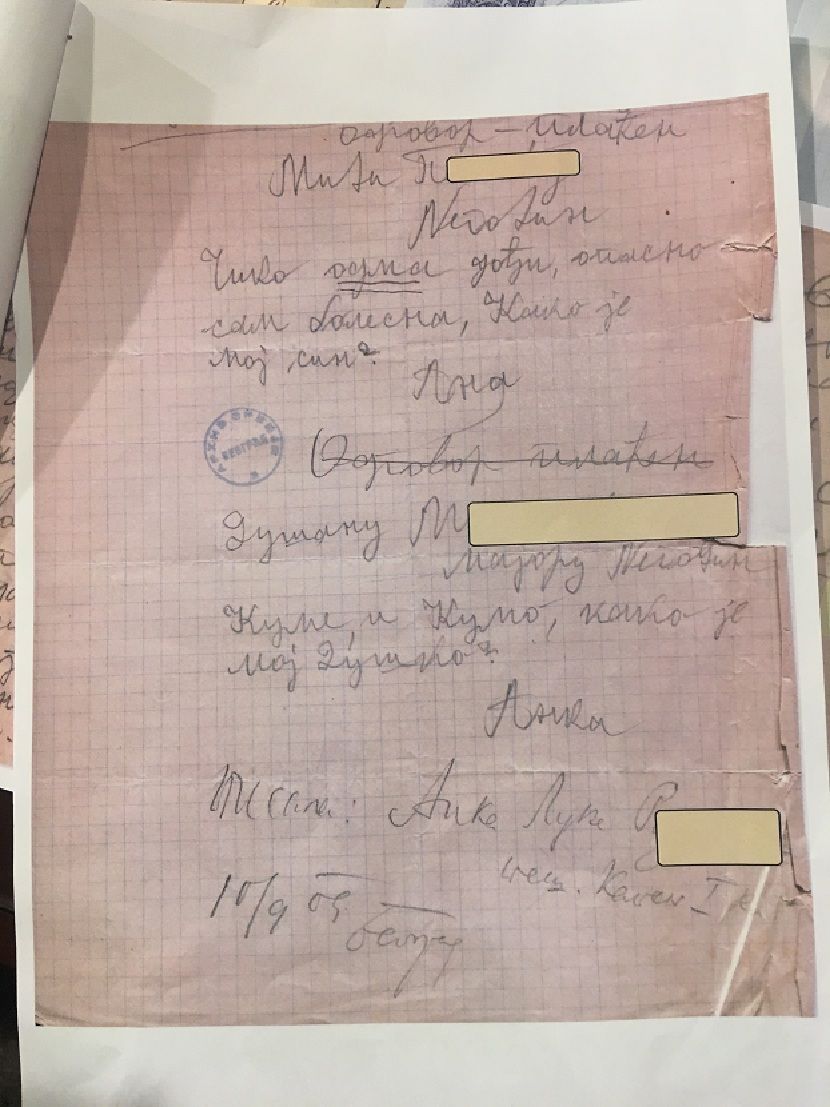 одговор – плаћен
Мита П
Неготин
Чико одма дођи, опасно
сам болесна, Како је
мој син?
Ана
Одговор плаћен
Душану М
мајору Неготин
Куме и Кумо, како је
мој Душко?
Анка
АРХИВ СРБИЈЕ
БЕОГРАД
Анка Луке
10/9 05
Београд